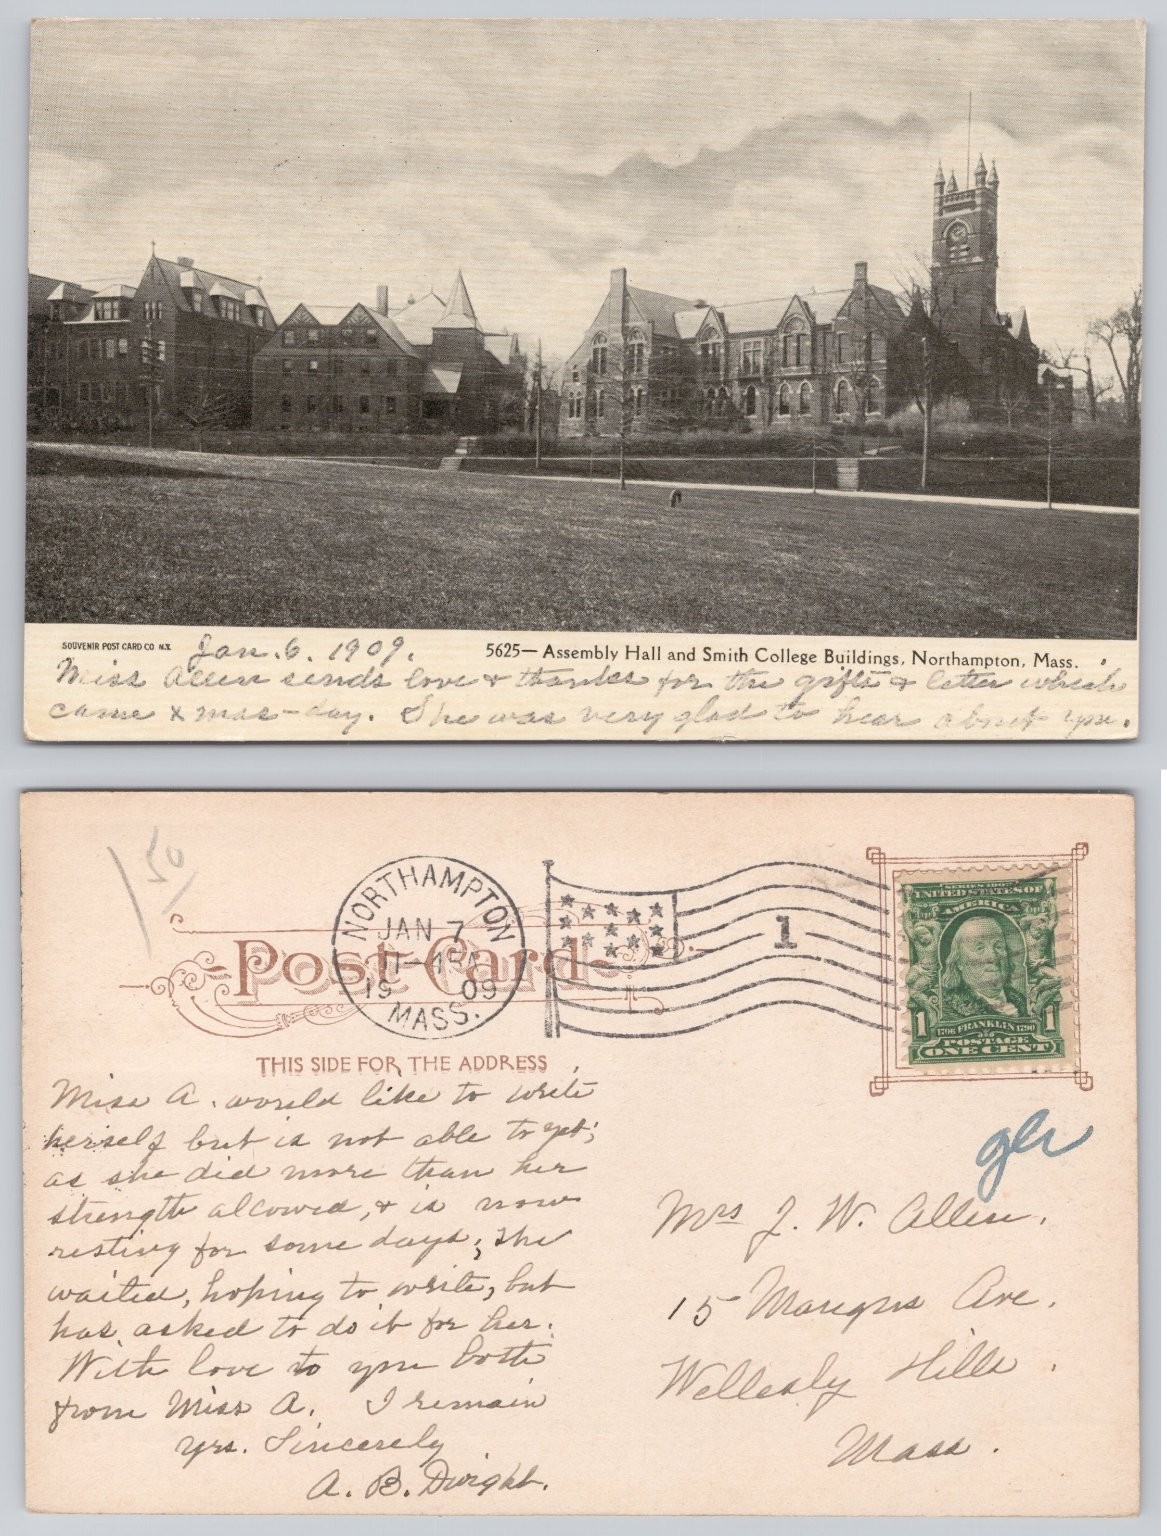 SOUVENIR POST CARD CO N.Y.
5625— Assembly Hall and Smith College Buildings, Northampton, Mass.
Jan. 6. 1909.
Miss Allen sends love & thanks for the gifts & letter which
came Xmas-day. She was very glad to hear about you.
150
NORTHAMPTON
JAN 7
19 09
MASS.
1
Post Card
THIS SIDE FOR THE ADDRESS
SERIES 1902
UNITED STATES OF
AMERICA
1 1
1706 FRANKLIN 1790
POSTAGE
ONE CENT
Miss A. would like to write
herself but is not able to yet;
as she did more than her
strength allowed, & is now
resting for some days; She
waited, hoping to write, but
has asked to do it for her.
With love to you both
from Miss A. I remain
yrs. Sincerely
A. B. Dwight.
Mrs J. W. Allen.
15 Ave.
Wellesly Hills.
Mass.